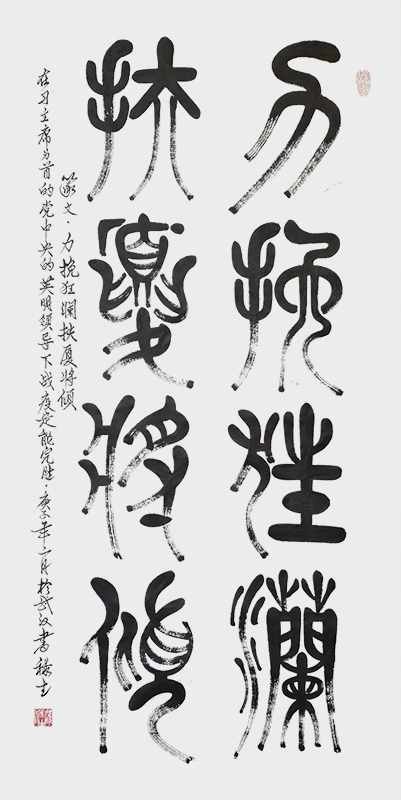 力挽狂瀾
扶廈將傾
篆文·力挽狂瀾扶厦将傾
在习主席为首的党中央的英明领导下战疫定能完胜·庚子年二月於武汉書